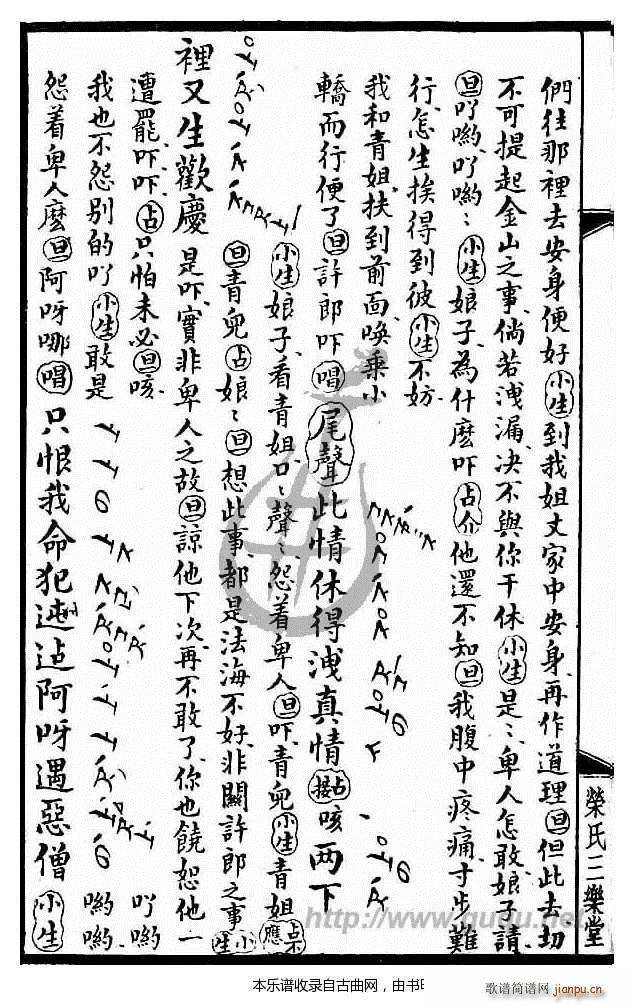 們往那裡去安身便好小生到我姐丈家中安身再作道理旦但此去切
不可提起金山之事倘若洩漏决不與你干休小生是〻卑人怎敢娘子請
旦吖喲吖喲〻小生娘子為什麽吓占介他還不知旦我腹中疼痛寸步難
行怎生挨得到彼小生不妨
我和青姐扶到前面喚乘小
轎而行便了旦許郎吓唱尾聲此情休得洩真情占接咳两下
小生娘子看青姐口〻聲〻怨着卑人旦吓青兒小生青姐占不應
旦青兒占娘〻旦想此事都是法海不好非關許郎之事小生
裡又生歡慶是吓實非卑人之故旦諒他下次再不敢了你也饒恕他一
遭罷吓吓占只怕未必旦咳
我也不怨别的吖小生敢是
吖喲
喲喲
怨着卑人麽旦阿呀哪唱只恨我命犯迍邅阿呀遇惡僧小生
榮氏三樂堂
http://www.guqu.net
本乐谱收录自古曲网，由书
歌谱简谱网
jianpu.cn